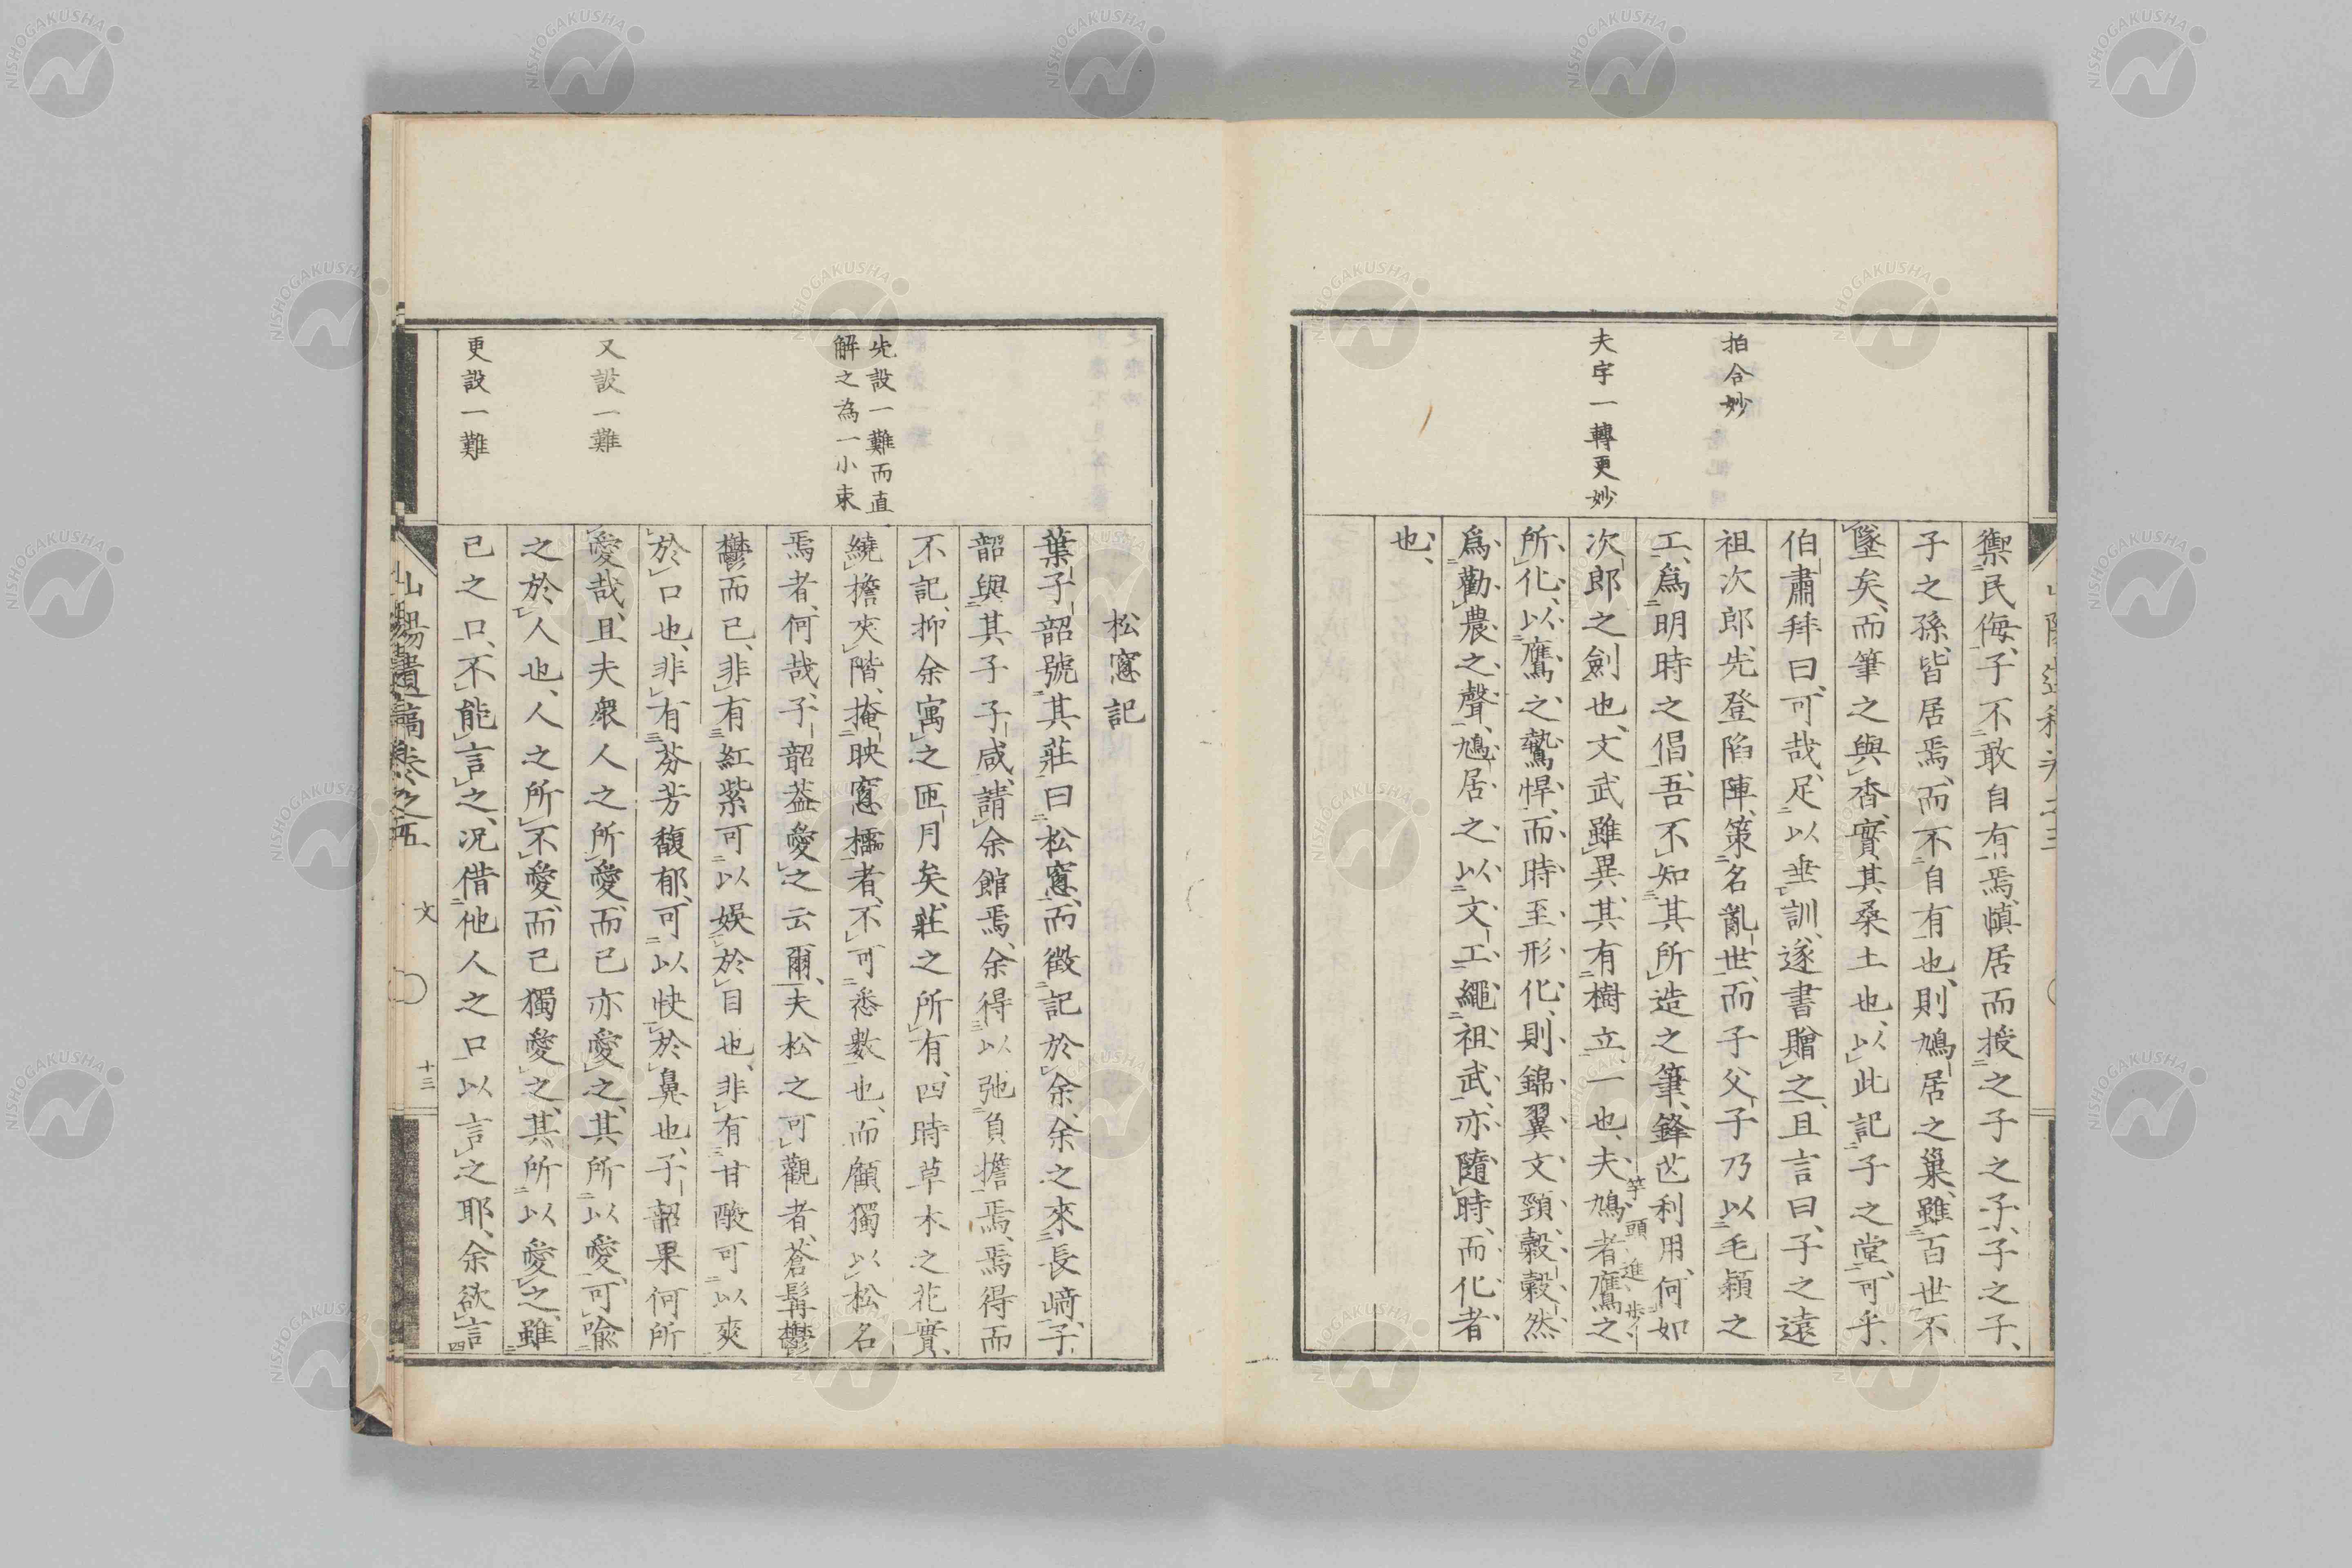 拍合妙
夫字一轉更妙
禦民侮、子不敢自有焉、愼居而授之子之子、子之子、
子之孫、皆居焉、而不自有也、則鳩居之巢、雖百世不
墜矣、而筆之與香、實其桑土也、以此記子之堂、可乎、
伯肅拜曰、可哉、足以垂訓、遂書贈之、且言曰、子之遠
祖次郎、先登陷陣、策名亂世、而子父子乃以毛穎之
工、爲明時之倡、吾不知其所造之筆、鋒芒利用、何如
次郎之劍也、文武雖異、其有樹立一也、夫鳩者鷹之
竿頭進步
所化、以鷹之鷙悍、而時至形化、則錦翼文頸、穀穀然
爲勸農之聲、鳩居之以文工繩祖武、亦隨時而化者
也、
先設一難而直
解之為一小束
又設一難
更設一難
松窓記
葉子韶號其莊曰松窓、而徵記於余、余之來長崎、子
韶與其子子咸、請余館焉、余得以弛負擔焉、焉得而
不記、抑余寓之匝月矣、莊之所有、四時草木之花實、
繞擔夾階、掩映窓櫺者、不可悉數也、而顧獨以松名
焉者、何哉、子韶葢愛之云爾、夫松之可觀者、蒼髯鬱
鬱而已、非有紅紫可以娛於目也、非有甘酸可以爽
於口也、非有芬芳馥郁、可以快於鼻也、子韶果何所
愛哉、且夫衆人之所愛、而己亦愛之、其所以愛、可喩
之於人也、人之所不愛、而己獨愛之、其所以愛之、雖
己之口、不能言之、況借他人之口以言之耶、余欲言
山陽遺稿卷之五
文
十三